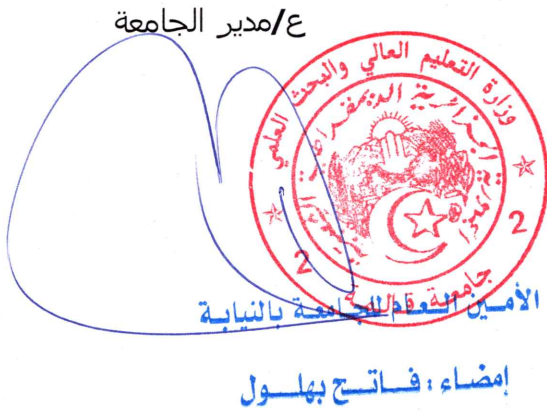 ع/مدير الجامعة
وزارة التعليم العالي والبحث العلمي
الجمهورية الجزائرية الديمقراطية الشعبية
2
2
جامعة قالمة
الأمين العام للجامعة بالنيابة
إمضاء : فاتح بهلول